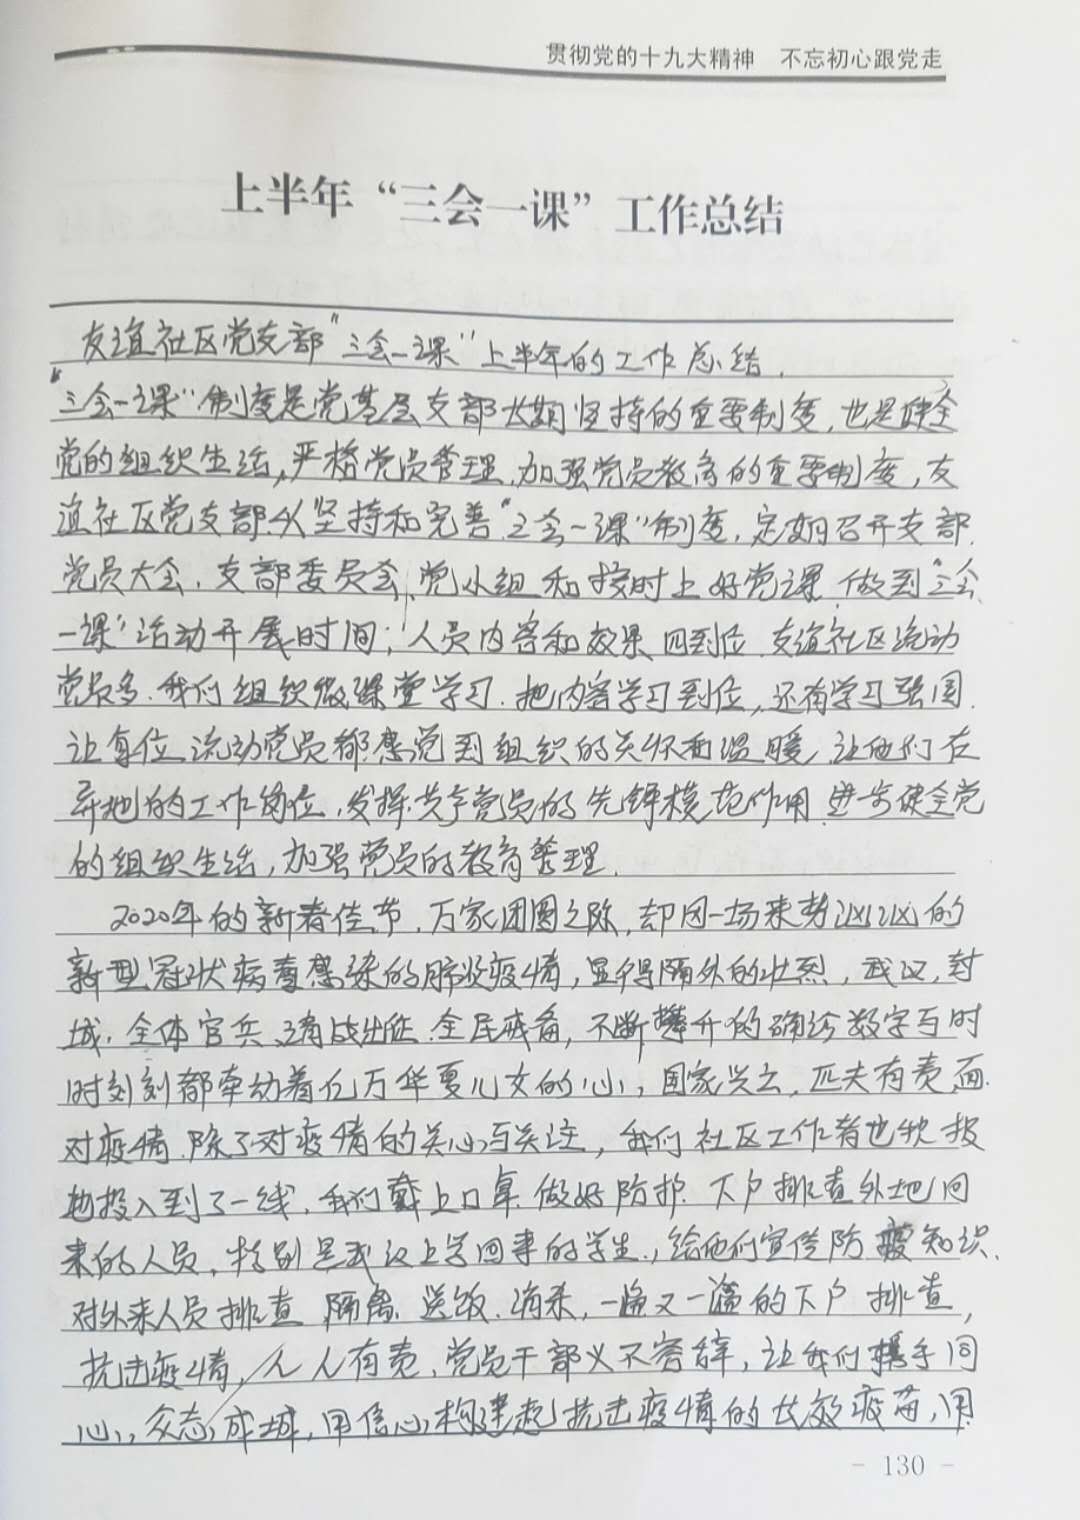 贯彻党的十九大精神 不忘初心跟党走
上半年“三会一课”工作总结
友谊社区党支部“三会一课”上半年的工作总结.
“三会一课”制度是党基层支部长期坚持的重要制度,也是健全
党的组织生活,严格党员管理,加强党员教育的重要制度,友
谊社区党支部从坚持和完善“三会一课”制度,定期召开支部
党员大会,支部委员会、党小组和按时上好党课,做到“三会
一课”活动开展时间;人员内容和效果四到位.友谊社区流动
党员多.我们组织微课堂学习.把内容学习到位,还有学习强国.
让每位流动党员都感觉到组织的关怀和温暖,让他们在
异地的工作岗位,发挥共产党员的先锋模范作用.进步健全党
的组织生活,加强党员的教育管理.
2020年的新春佳节,万家团圆之际,却因一场来势汹汹的
新型冠状病毒感染的肺炎疫情,显得隔外的壮烈,武汉,封
城.全体官兵,请战出征.全民戒备,不断攀升的确诊数字与时
时刻刻都牵动着亿万华夏儿女的心,国家兴亡,匹夫有责,面
对疫情.除了对疫情的关心与关注,我们社区工作者也积极
地投入到了一线,我们戴上口罩.做好防护.下户排查外地回
来的人员,特别是武汉上学回来的学生,给他们宣传防疫知识.
对外来人员排查 隔离.送饭.消杀,一遍又一遍的下户排查,
抗击疫情,人人有责,党员干部义不容辞,让我们携手同
心,众志成城,用信心构建起抗击疫情的长效疫苗,用
- 130 -